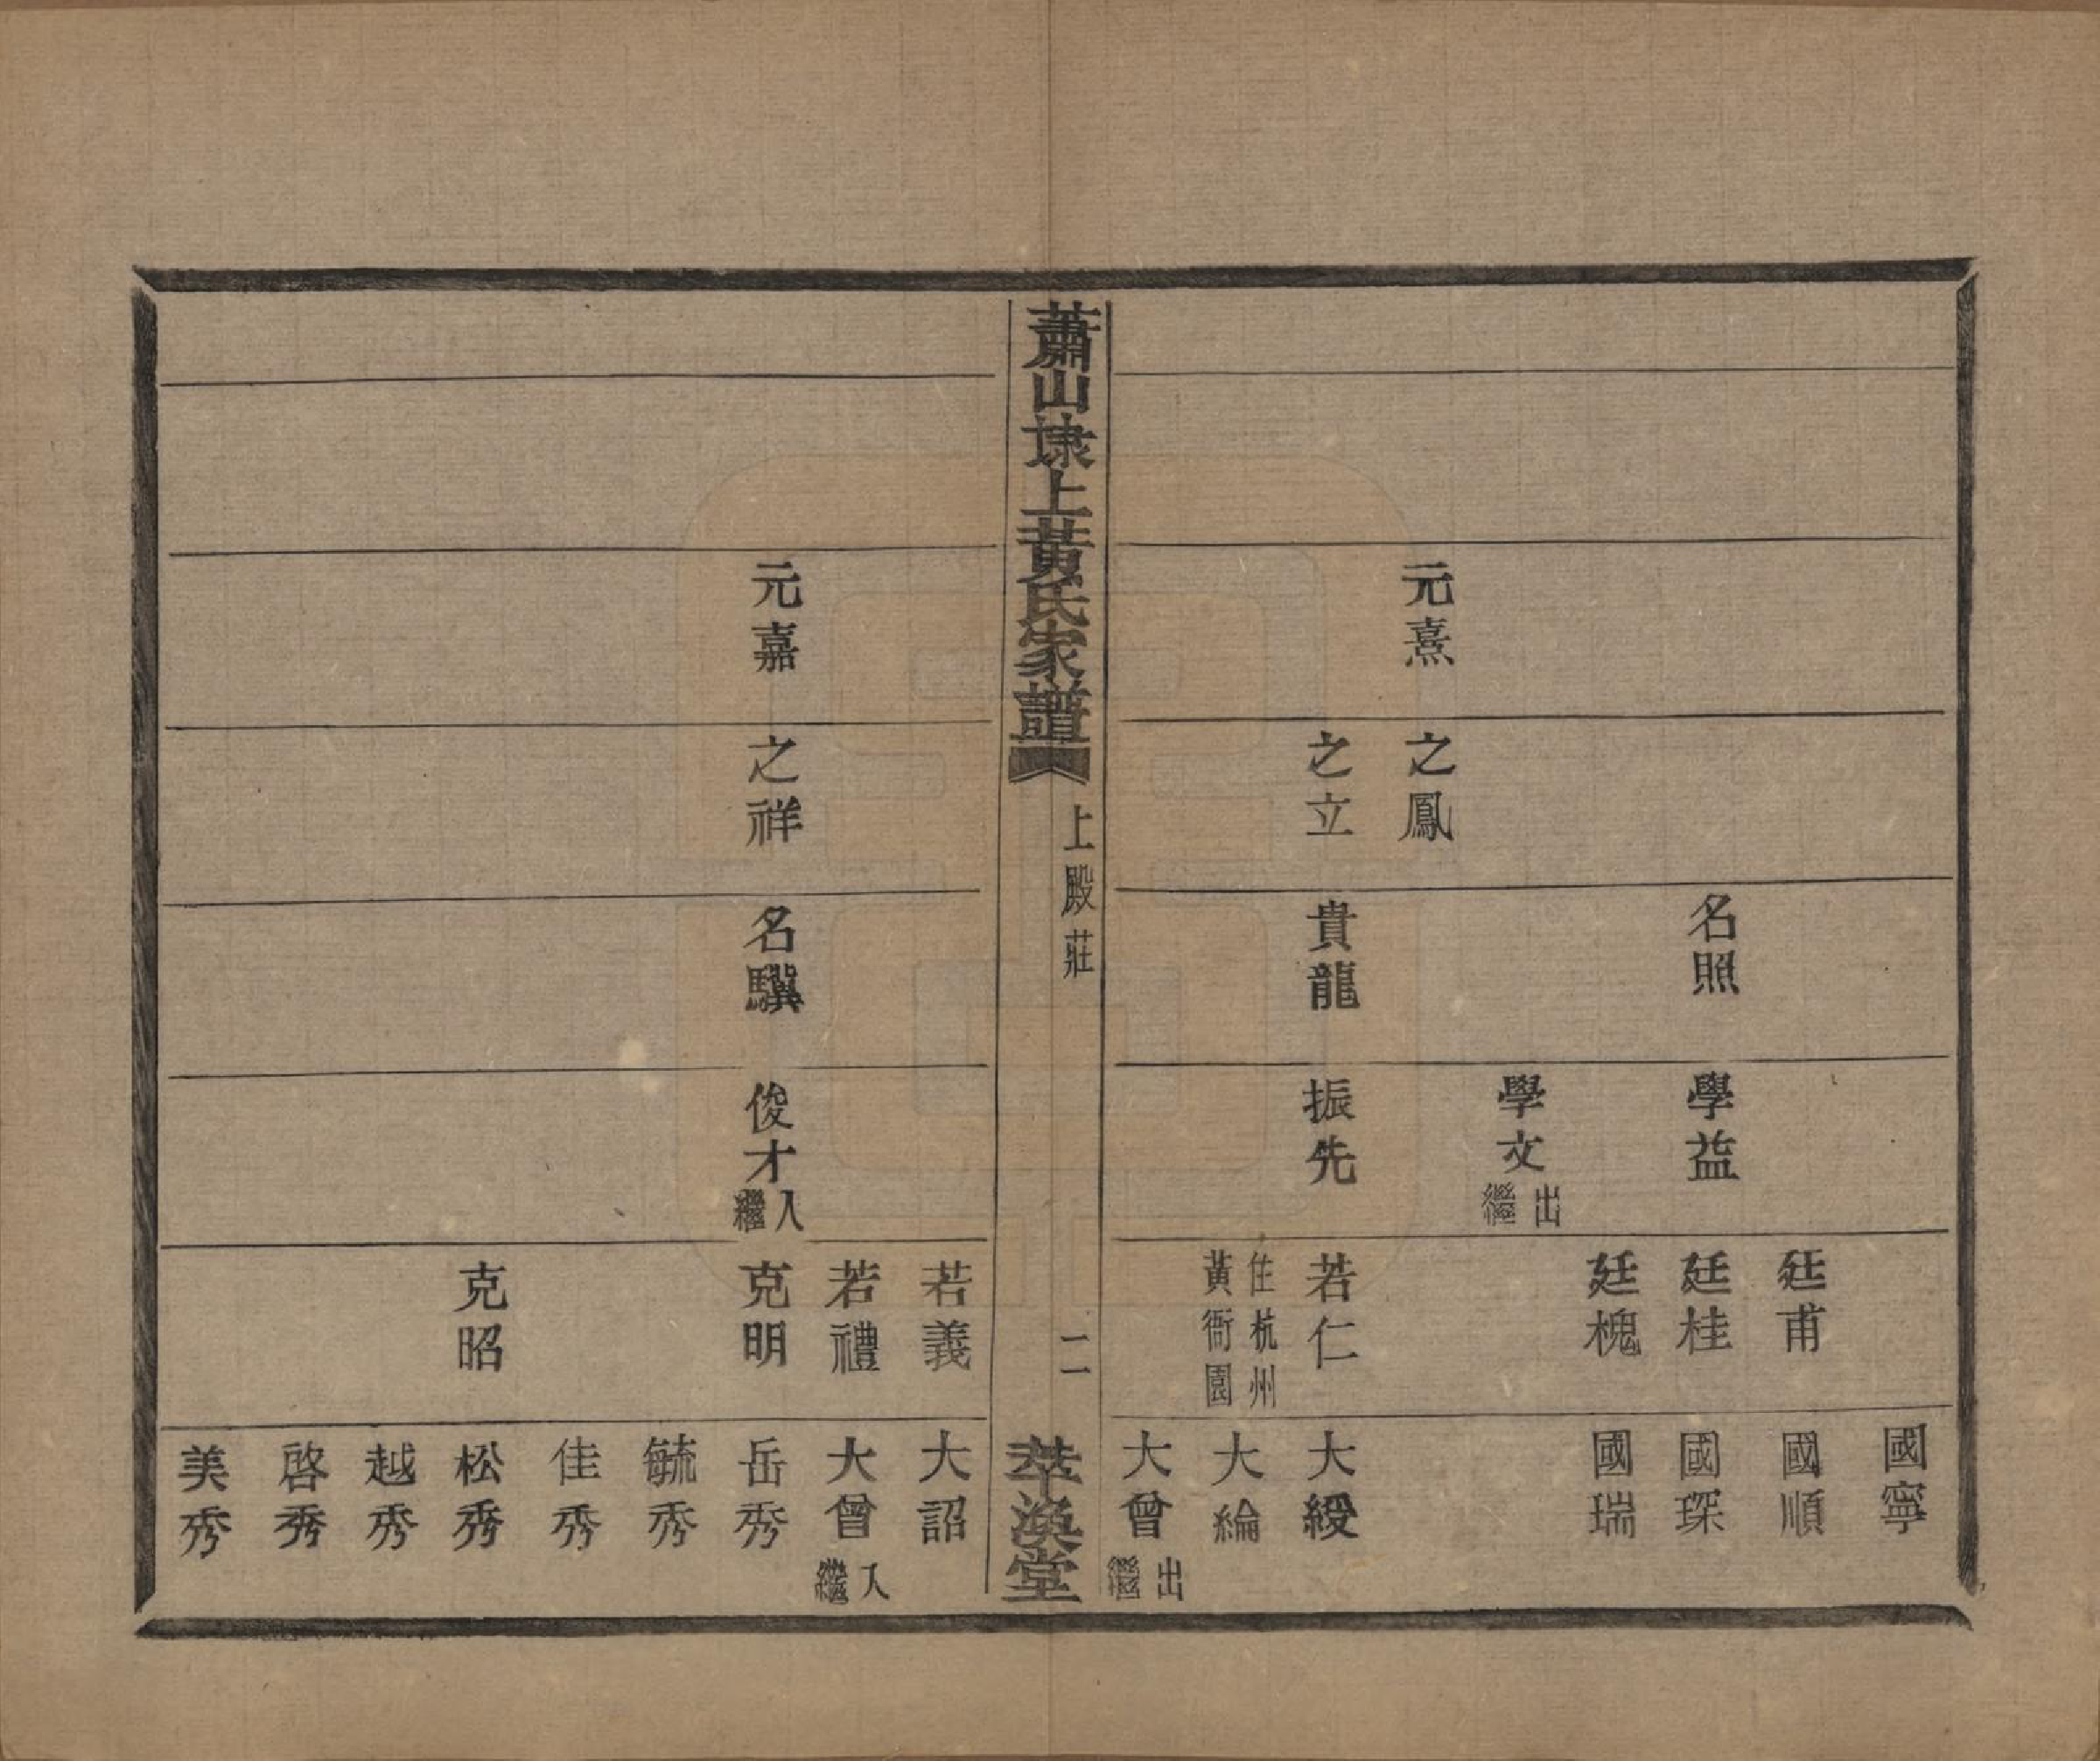 元熹
之鳳
之立
名照
貴龍
學益
學文出繼
振先
廷甫
廷桂
廷槐
若仁住杭州黃衙園
國寧
國順
國琛
國瑞
大綬
大綸
大曾出繼
蕭山埭上黃氏家譜
上殿莊
二
萃渙堂
元嘉
之祥
名驥
俊才入繼
若義
若禮
克明
克昭
大詔
大曾入繼
岳秀
毓秀
佳秀
松秀
越秀
啓秀
美秀